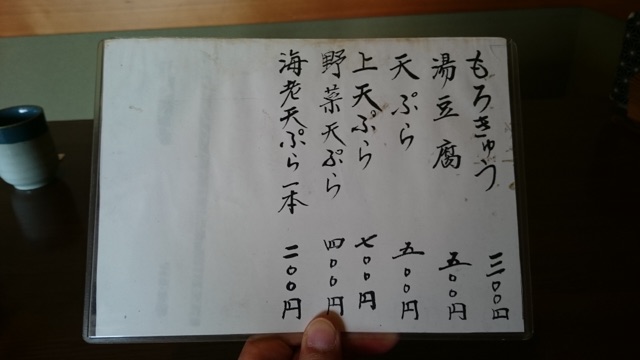 もろきゅう 三〇〇円
湯豆腐 五〇〇円
天ぷら 五〇〇円
上天ぷら 七〇〇円
野菜天ぷら 四〇〇円
海老天ぷら一本 二〇〇円